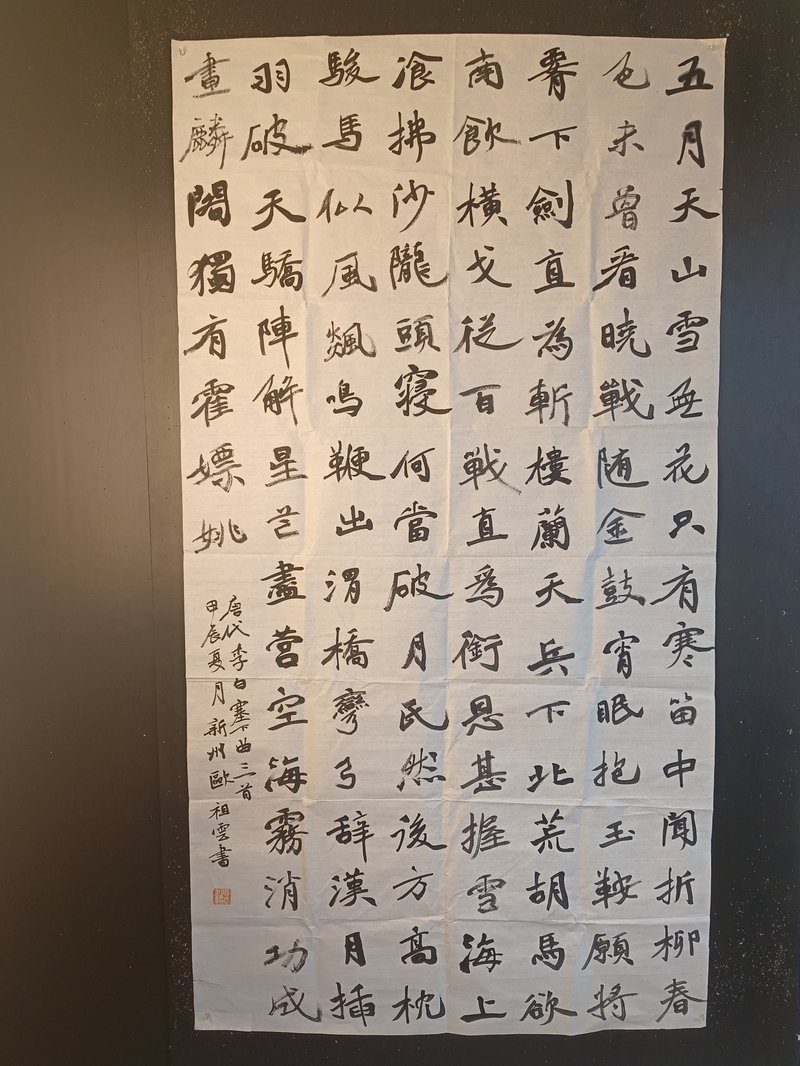 五月天山雪無花只有寒笛中聞折柳春
色未曾看暁戦随金鼓宵眠抱玉鞍願将
腰下劍直為斬樓蘭天兵下北荒胡馬欲
南飲橫戈從百戦直爲銜恩甚握雪海上
飡拂沙隴頭寢何當破月氏然後方高枕
駿馬似風飈鳴鞭出渭橋彎弓辞漢月插
羽破天驕陣解星芒盡营空海霧消功成
畫麟閣獨有霍嫖姚
唐代李白塞下曲三首
甲辰夏月新州歐祖雲書